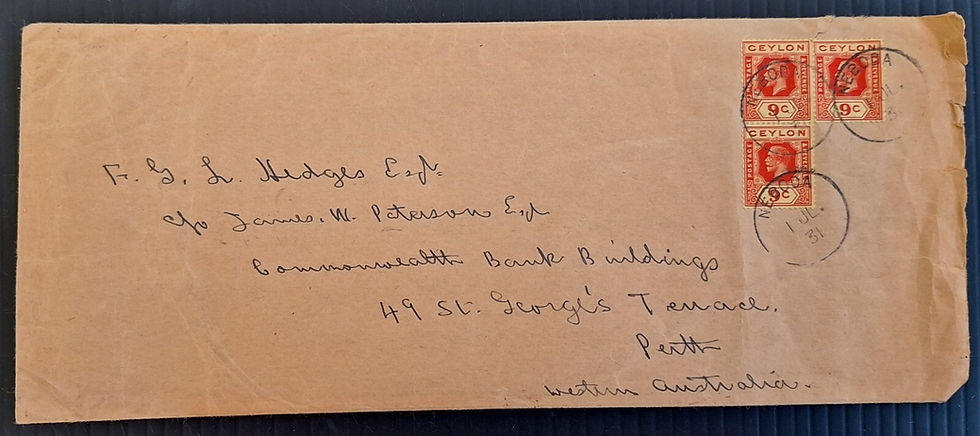 CEYLON CEYLON
POSTAGE REVENUE POSTAGE REVENUE
9 C 9 C
CEYLON
POSTAGE REVENUE
9 C
NEBODA
NEBODA
JL.
3
NEBODA
1 JL.
31
F. G. L. Hedges Esqr.
c/o James. W. Paterson Esq
Commonwealth Bank Buildings
49 St. George's Terrace.
Perth
Western Australia.